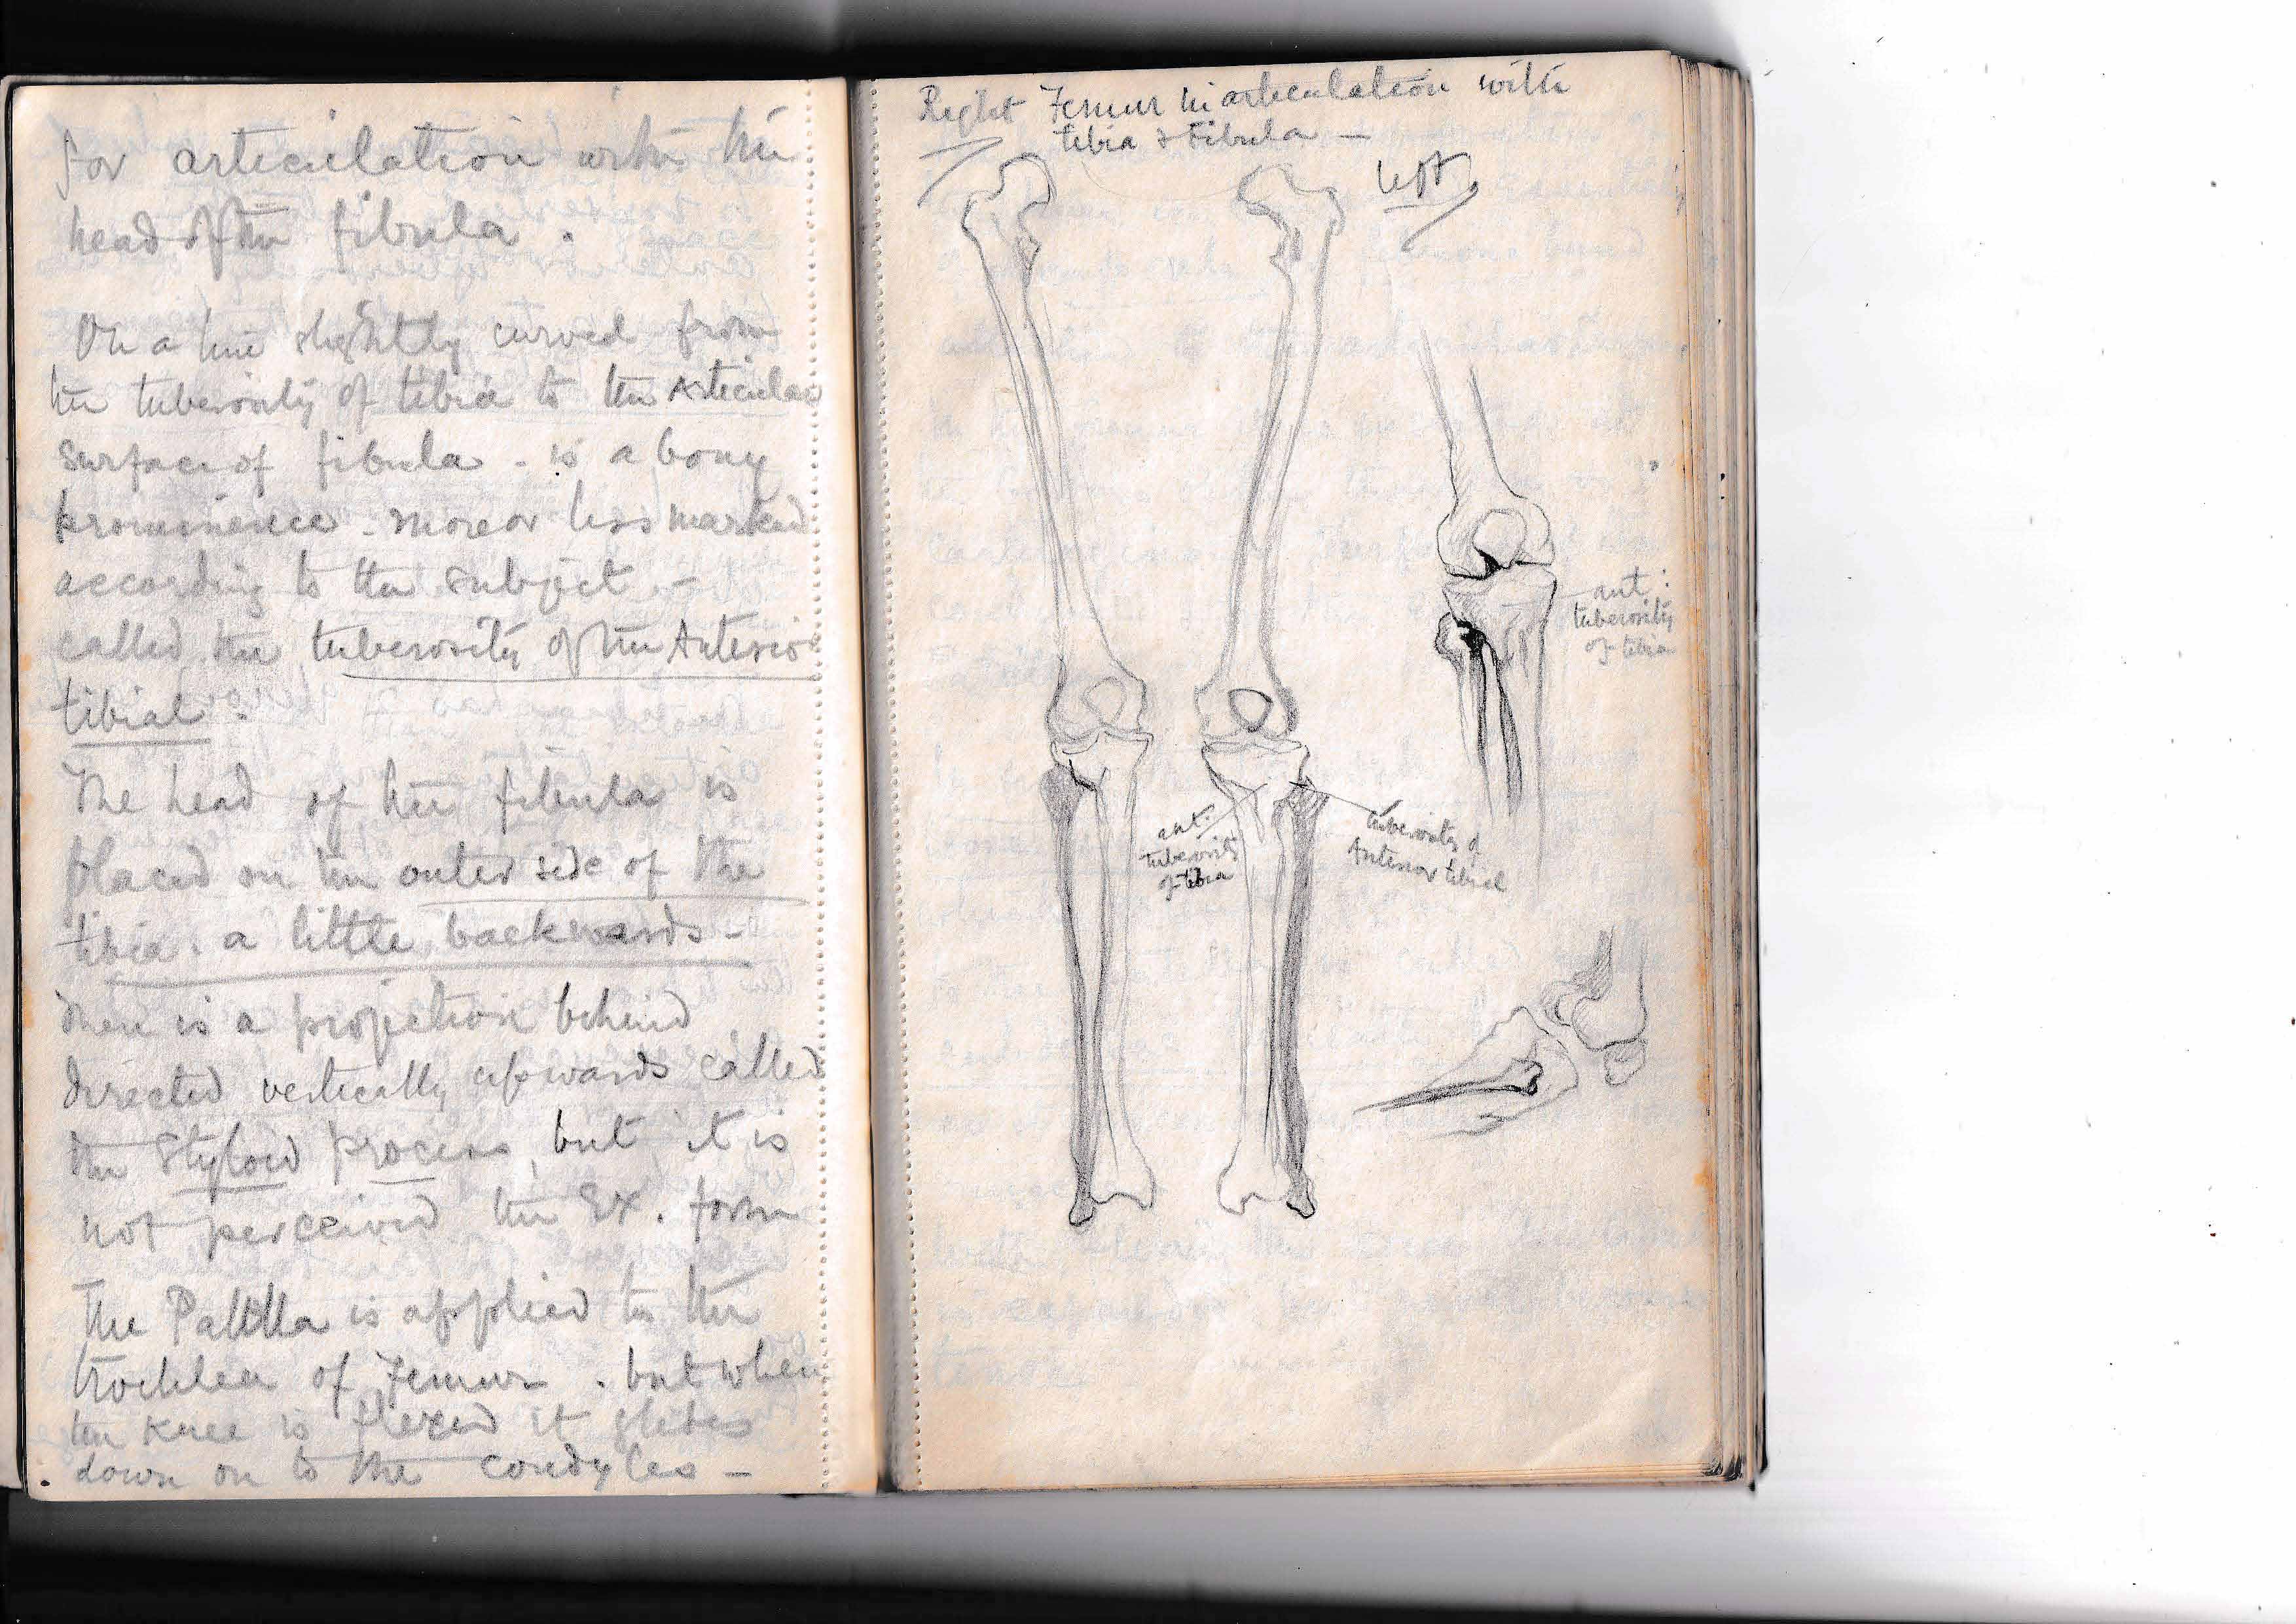 for articulation with the
head of the fibula.
On a line slightly curved from
the tuberosity of tibia to the Articular
surface of fibula - is a bony
prominence - more or less marked
according to the subject -
called the tuberosity of the Anterior
tibial.
The head of the fibula is
placed on the outer side of the
tibia. a little backwards -
There is a projection behind
directed vertically upwards called
the Styloid process, but it is
not perceived the Ex. form
The Patella is applied to the
trochlea of Femur. but when
the knee is flexed it glides
down on to the condyles -
Right Femur in articulation with
tibia & Fibula -
left
ant:
tuberosity
of tibia
ant:
tuberosity
of tibia
tuberosity of
Anterior tibial